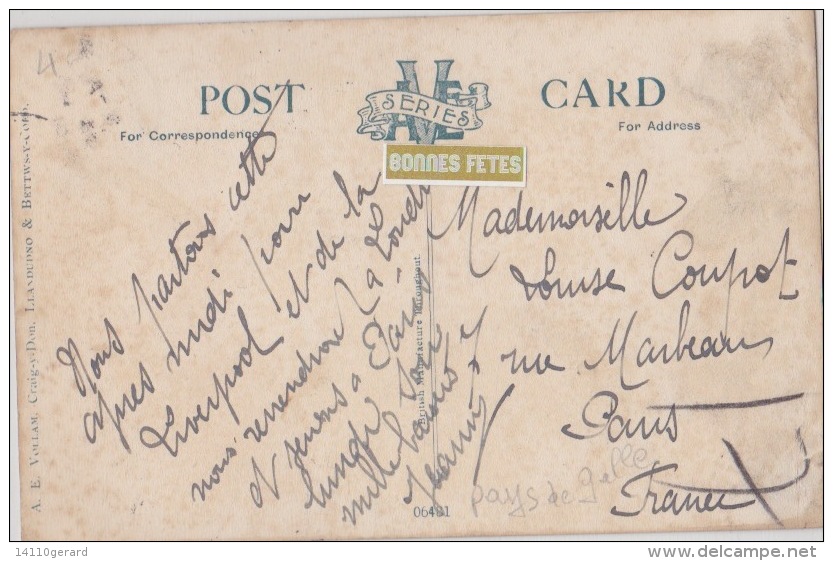 POST CARD
VALE
SERIES
For Correspondence
For Address
BONNES FETES
A. E. Vellam, Craig-y-Don, Llandudno & Bettws-y-Coed.
British Manufacture Throughout
Nous partons cette
après midi pour
Liverpool et de là
nous reviendrons à Londres
et serons à
lundi
mille baisers
Jeanne
Mademoiselle
Louise Coupot
7 rue Marbeau
Paris
France
pays de galle
06481
14110gerard
delcampe.net